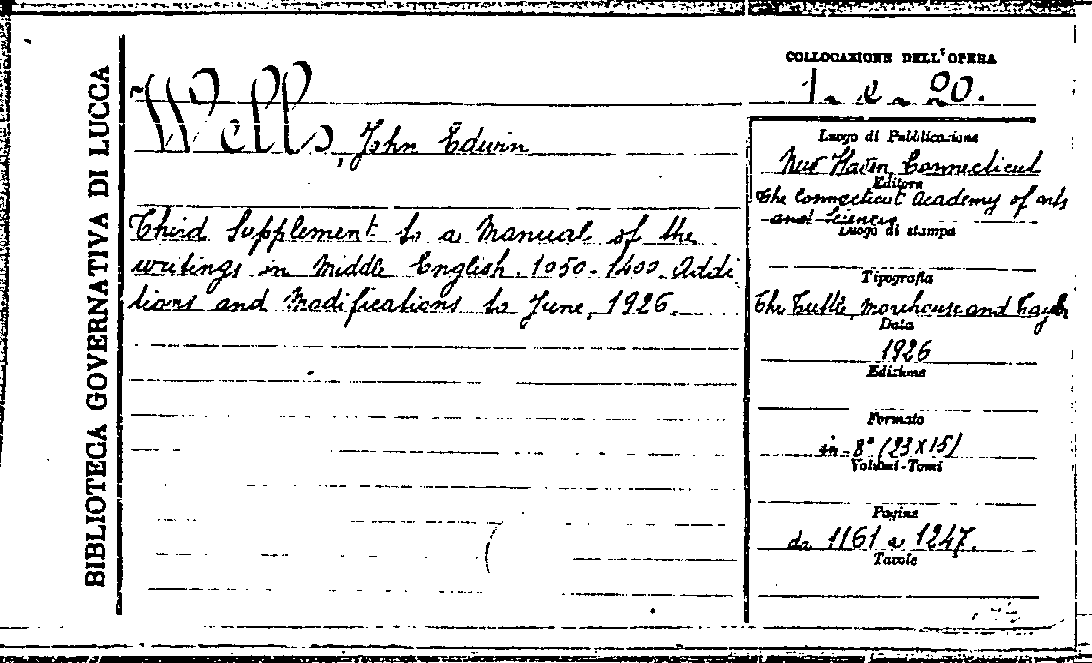 BIBLIOTECA GOVERNATIVA DI LUCCA
Wells, John Edwin
Third Supplement to a Manual of the
writings in Middle English. 1050-1400. Addi
tions and Modifications to June, 1926.
COLLOCAZIONE DELL'OPERA
Luogo di Pubblicazione
New Haven, Connecticut
Editore
The Connecticut Academy of arts
and Sciences
Luogo di stampa
Tipografia
The Tuttle, Morehouse and Taylor
Data
1926
Edizione
Formato
in-8° (23x15)
Volumi-Tomi
Pagine
da 1161 a 1247.
Tavole